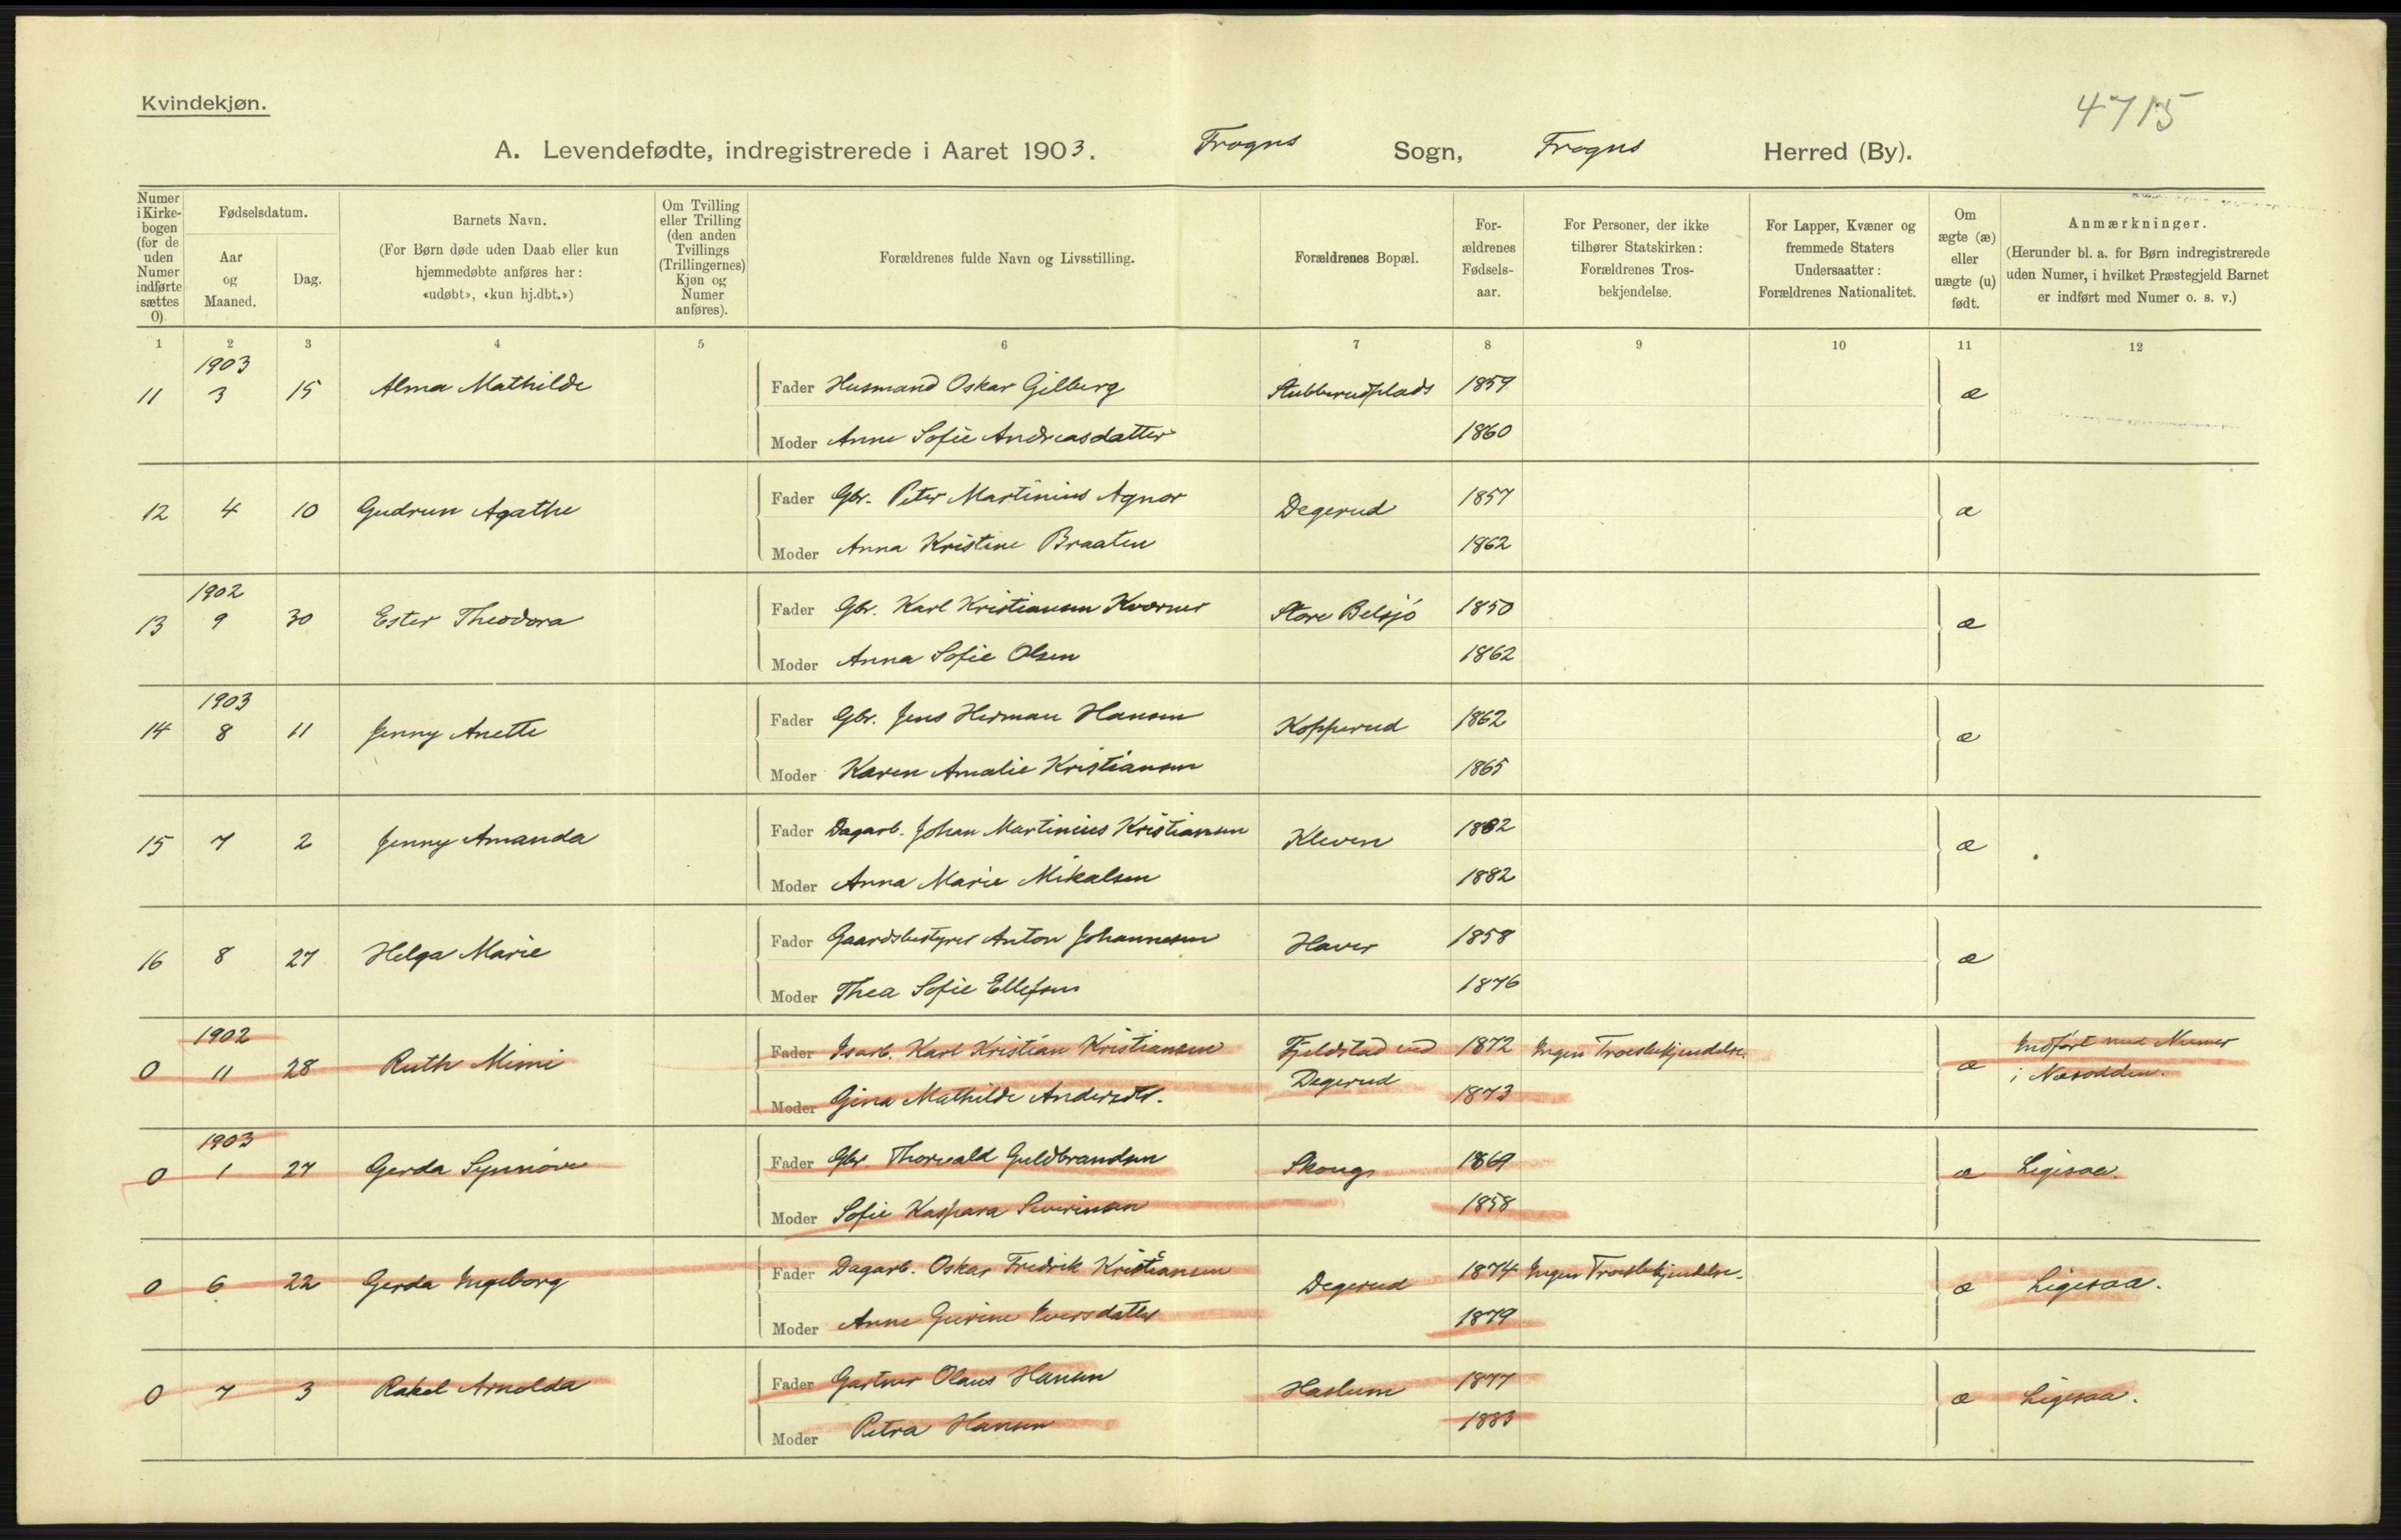 Kvindekjøn.
4715
A. Levendefødte, indregistrerede i Aaret 1903. Frogns Sogn, Frogns Herred (By).
Numer i Kirke- bogen (for de uden Numer indførte sættes 0).
Fødselsdatum.
Aar og Maaned.
Dag.
Barnets Navn.
(For Børn døde uden Daab eller kun hjemmedøbte anføres her: «udøbt», «kun hj.dbt.»)
Om Tvilling eller Trilling (den anden Tvillings (Trillingernes) Kjøn og Numer anføres).
Forældrenes fulde Navn og Livsstilling.
Forældrenes Bopæl.
For- ældrenes Fødsels- aar.
For Personer, der ikke tilhører Statskirken: Forældrenes Tros- bekjendelse.
For Lapper, Kvæner og fremmede Staters Undersaatter: Forældrenes Nationalitet.
Om ægte (æ) eller uægte (u) født.
Anmærkninger.
(Herunder bl. a. for Børn indregistrerede uden Numer, i hvilket Præstegjeld Barnet er indført med Numer o. s. v.)
1 2 3 4 5 6 7 8 9 10 11 12
1903
11 3 15 Alma Mathilde Fader Husmand Oskar Gilberg Stubberudplads 1859 æ
Moder Anne Sofie Andreasdatter 1860
12 4 10 Gudrun Agathe Fader Gbr. Peter Martinius Agnor Degerud 1857 æ
Moder Anna Kristine Braaten 1862
1902
13 9 30 Ester Theodora Fader Gbr. Karl Kristiansen Kværner Store Belsjö 1850 æ
Moder Anna Sofie Olsen 1862
1903
14 8 11 Jenny Anette Fader Gbr. Jens Herman Hansen Kopperud 1862 æ
Moder Karen Amalie Kristiansen 1865
15 7 2 Jenny Amanda Fader Dagarb. Johan Martinius Kristiansen Kleven 1882 æ
Moder Anna Marie Mikalsen 1882
16 8 27 Helga Marie Fader Gaardsbestyrer Anton Johannesen Haver 1858 æ
Moder Thea Sofie Ellefsen 1876
1902
0 11 28 Ruth Mimi Fader Isarb. Karl Kristian Kristiansen Fjeldstad ved 1872 Ingen Troesbekjendelse. æ Indført med Numer
Moder Gina Mathilde Andersdtr. Degerud 1873 i Næsodden.
1903
0 1 27 Gerda Synnöve Fader Gbr. Thorvald Guldbrandsen Skoug 1869 æ Ligesaa.
Moder Sofie Kaspara Severinsen 1858
0 6 22 Gerda Ingeborg Fader Dagarb. Oskar Fredrik Kristiansen Degerud 1874 Ingen Troesbekjendelse. æ Ligesaa.
Moder Anne Gurine Iversdatter 1879
0 7 3 Rakel Arnolda Fader Gartner Olaus Hansen Haslum 1877 æ Ligesaa.
Moder Petra Hansen 1883